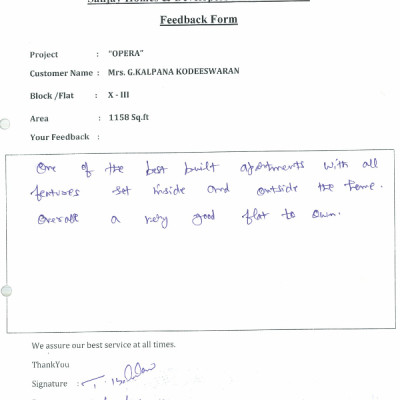 Feedback Form
Project : "OPERA"
Customer Name : Mrs. G.KALPANA KODEESWARAN
Block /Flat : X - III
Area : 1158 Sq.ft
Your Feedback :
One of the best built apartments with all
features set inside and outside the home.
Overall a very good flat to own.
We assure our best service at all times.
ThankYou
Signature :